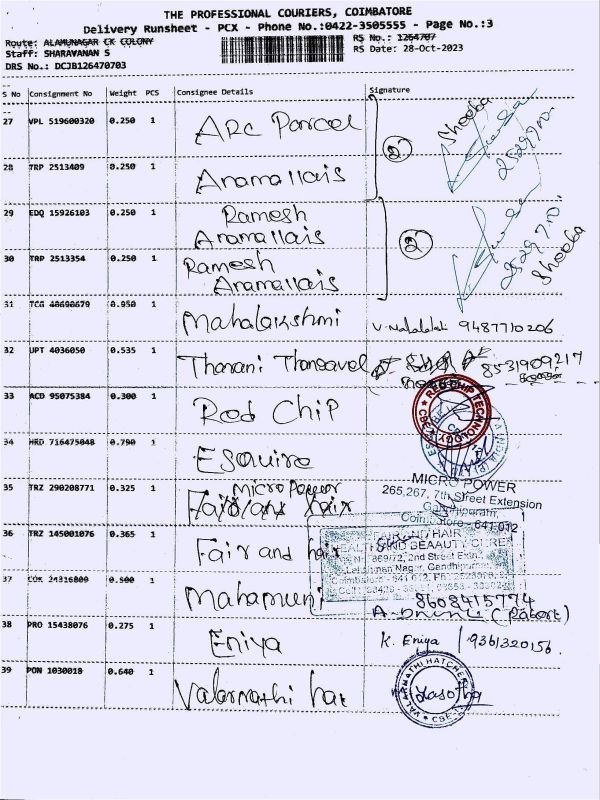 THE PROFESSIONAL COURIERS, COIMBATORE
Delivery Runsheet - PCX - Phone No.:0422-3505555 - Page No.:3
Route: ALAMUNAGAR CK COLONY
RS No.: 1264707
Staff: SHARAVANAN S
RS Date: 28-Oct-2023
DRS No.: DCJB126470703
S No Consignment No Weight PCS Consignee Details Signature
27 VPL 519600320 0.250 1 ARC Parcel
Shooba
28 TRP 2513409 0.250 1 Anamallais
2
25297 no.
29 EDQ 15926103 0.250 1 Ramesh
Anamallais
2
30 TRP 2513354 0.250 1 Ramesh
Anamallais
25297 no.
Shooba
31 TCG 40690679 0.950 1 Mahalakshmi 9487710206
32 UPT 4036050 0.535 1 Tharani 8531909217
33 ACD 95075384 0.300 1 Red Chip
RED CHIP TECHNOLOGY
34 HRD 716475048 0.790 1 Esquire
35 TRZ 290208771 0.325 1 Micro Power
MICRO POWER
265,267, 7th Street Extension
Gandhipuram,
Coimbatore - 641 012
36 TRZ 145001076 0.365 1 Fair and hair
FAIR AND HAIR
HEALTH AND BEAAUTY CURE
2nd Street Extn.
Lakshman Nagar, Gandhipuram
Coimbatore - 641 012
37 COK 24316809 0.900 1 Mahamuni
8608415774
38 PRO 15438076 0.275 1 Eniya K. Eniya / 9361320156
39 PON 1030018 0.640 1 Valarmathi hat
VALARMATHI HATCHE
Yasotha